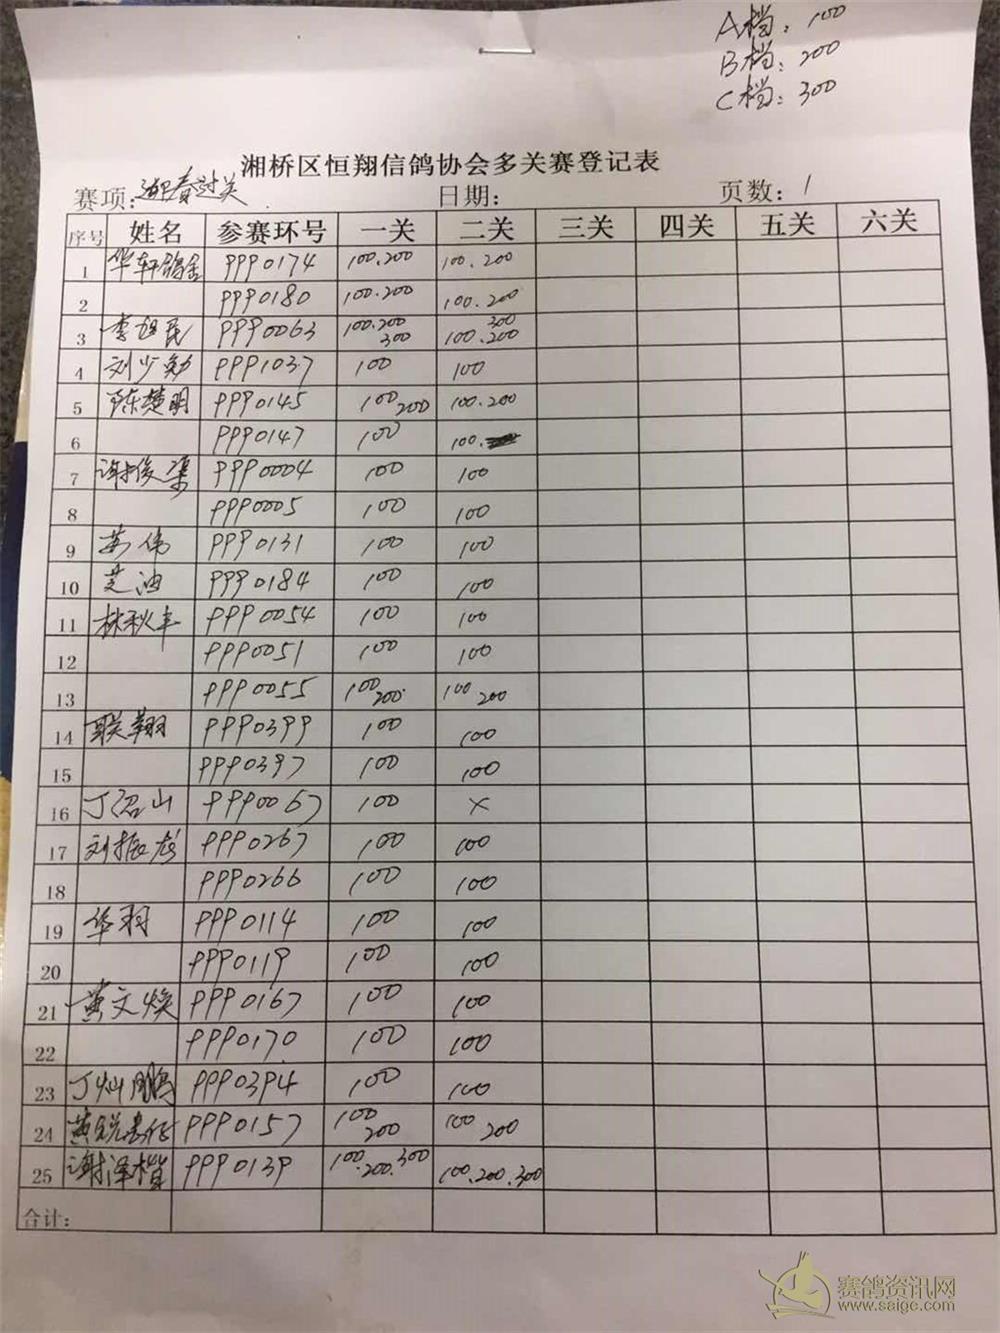 A档：100
B档：200
C档：300
湘桥区恒翔信鸽协会多关赛登记表
赛项：迎春过关 日期： 页数：1
序号 姓名 参赛环号 一关 二关 三关 四关 五关 六关
1 华轩鸽舍 PPP0174 100.200 100.200
2 PPP0180 100.200 100.200
3 李旭民 PPP0063 100.200 300 100.200 300
4 刘少勉 PPP1037 100 100
5 陈楚明 PPP0145 100 200 100.200
6 PPP0147 100 100.
7 谢俊 PPP0004 100 100
8 PPP0005 100 100
9 伟 PPP0131 100 100
10 芝油 PPP0184 100 100
11 林秋丰 PPP0054 100 100
12 PPP0051 100 100
13 PPP0055 100 200. 100 200
14 联翔 PPP0399 100 100
15 PPP0397 100 100
16 丁 山 PPP0067 100 ×
17 刘振 PPP0267 100 100
18 PPP0266 100 100
19 华羽 PPP0114 100 100
20 PPP0119 100 100
21 黄文焕 PPP0167 100 100
22 PPP0170 100 100
23 丁灿鹏 PPP0394 100 100
24 黄 PPP0157 100 200 100 200
25 谢泽楷 PPP0139 100.200.300 100.200.300
合计：
赛鸽资讯网
www.saige.com